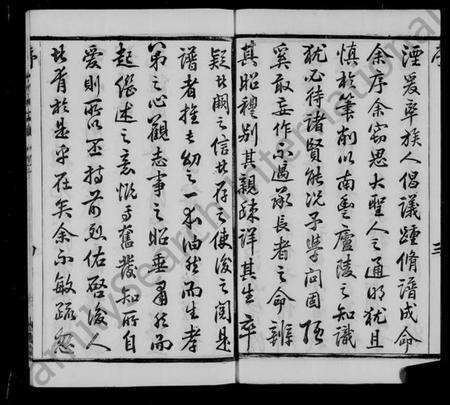 序
三
湮爰率族人倡議踵脩譜成命
余序余竊思大聖人之通明猶且
慎於筆削以南豐廬陵之知識
猶必待諸賢能況予學問固陋
奚敢妄作不過承長者之命辨
其昭穆別其親疎詳其生卒
疑者闕之信者存之使後之閱是
譜者推長幼之一本油然而生孝
弟之心觀志事之昭垂肅然而
起繼述之意慨焉奮發知所自
愛則所以丕持前烈佑啓後人
者胥於是乎在矣余不敏疏忽